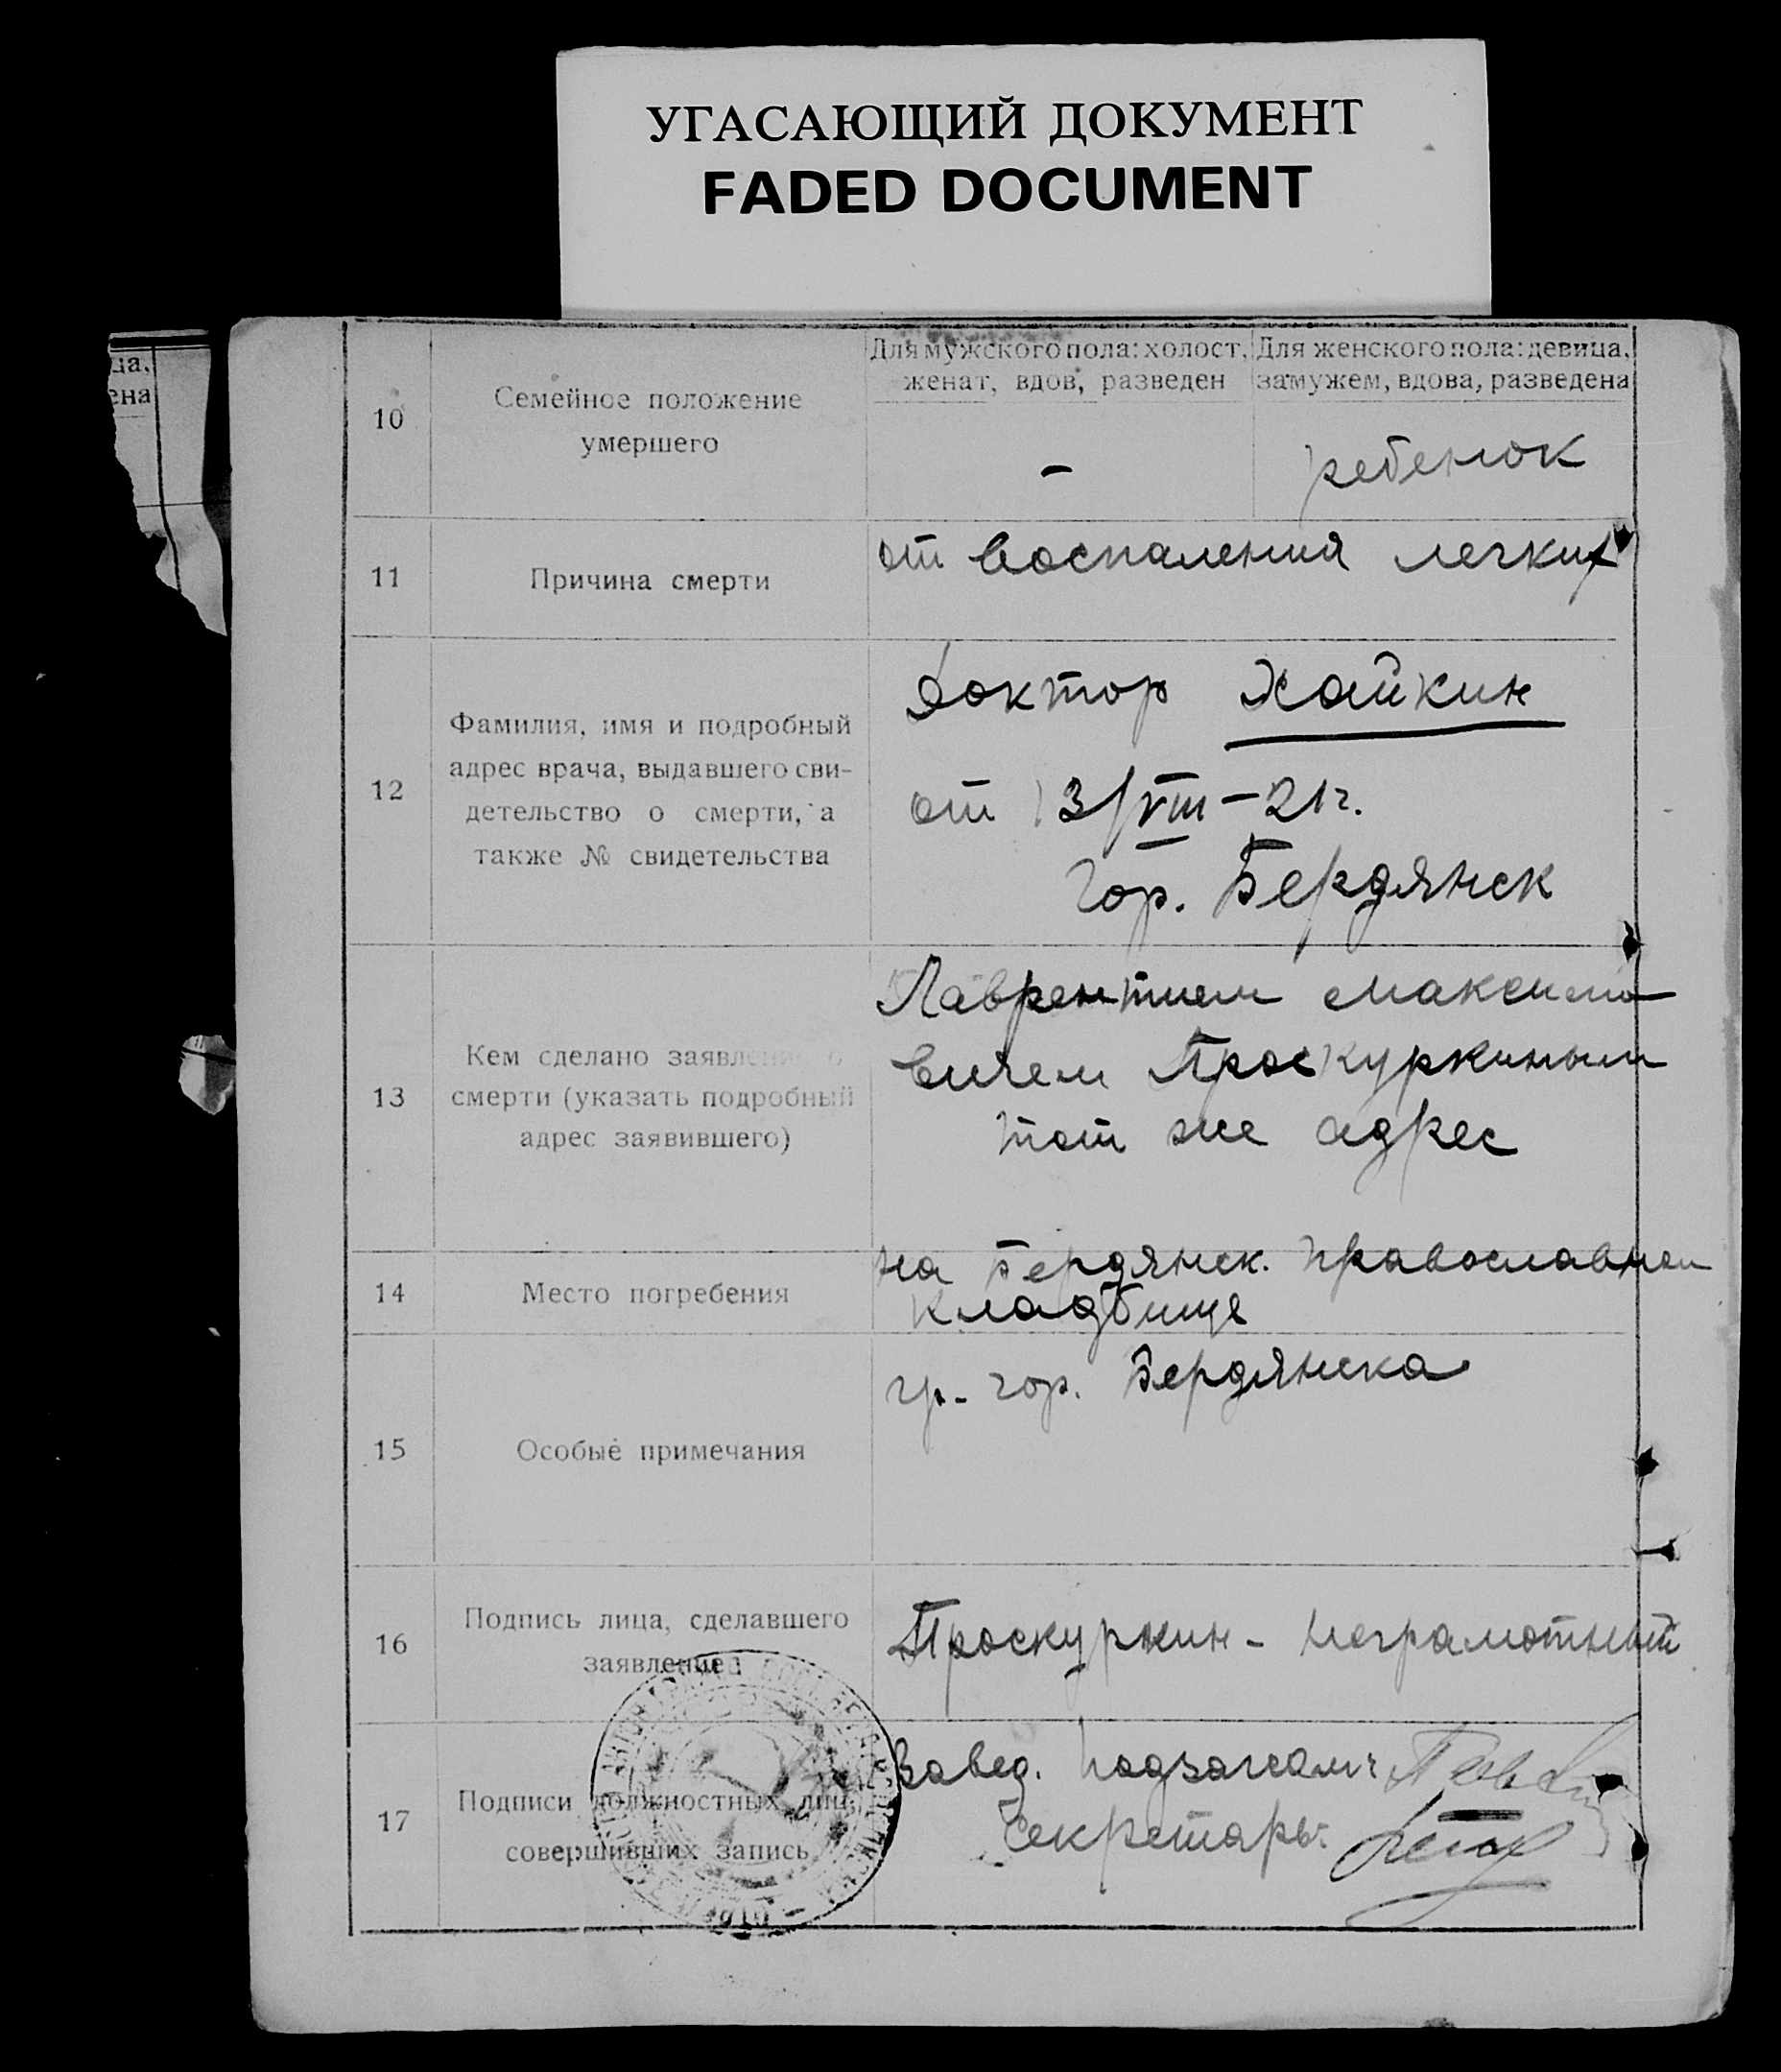 УГАСАЮЩИЙ ДОКУМЕНТ
FADED DOCUMENT
ца,
ена
10
Семейное положение
умершего
Для мужского пола: холост,
женат, вдов, разведен
Для женского пола: девица,
замужем, вдова, разведена
–
ребенок
11
Причина смерти
от воспаления легких
12
Фамилия, имя и подробный
адрес врача, выдавшего сви-
детельство о смерти, а
также № свидетельства
Доктор Хайкин
от 13/VIII – 21 г.
гор. Бердянск
13
Кем сделано заявление о
смерти (указать подробный
адрес заявившего)
Лаврентием Максимо
вичем Проскуркиным
тот же адрес
14
Место погребения
на Бердянск. православном
кладбище
15
Особые примечания
гр. гор. Бердянска
16
Подпись лица, сделавшего
заявление
Проскуркин – неграмотный
17
Подписи должностных лиц,
совершивших запись
Завед. подзагсом:
Секретарь: